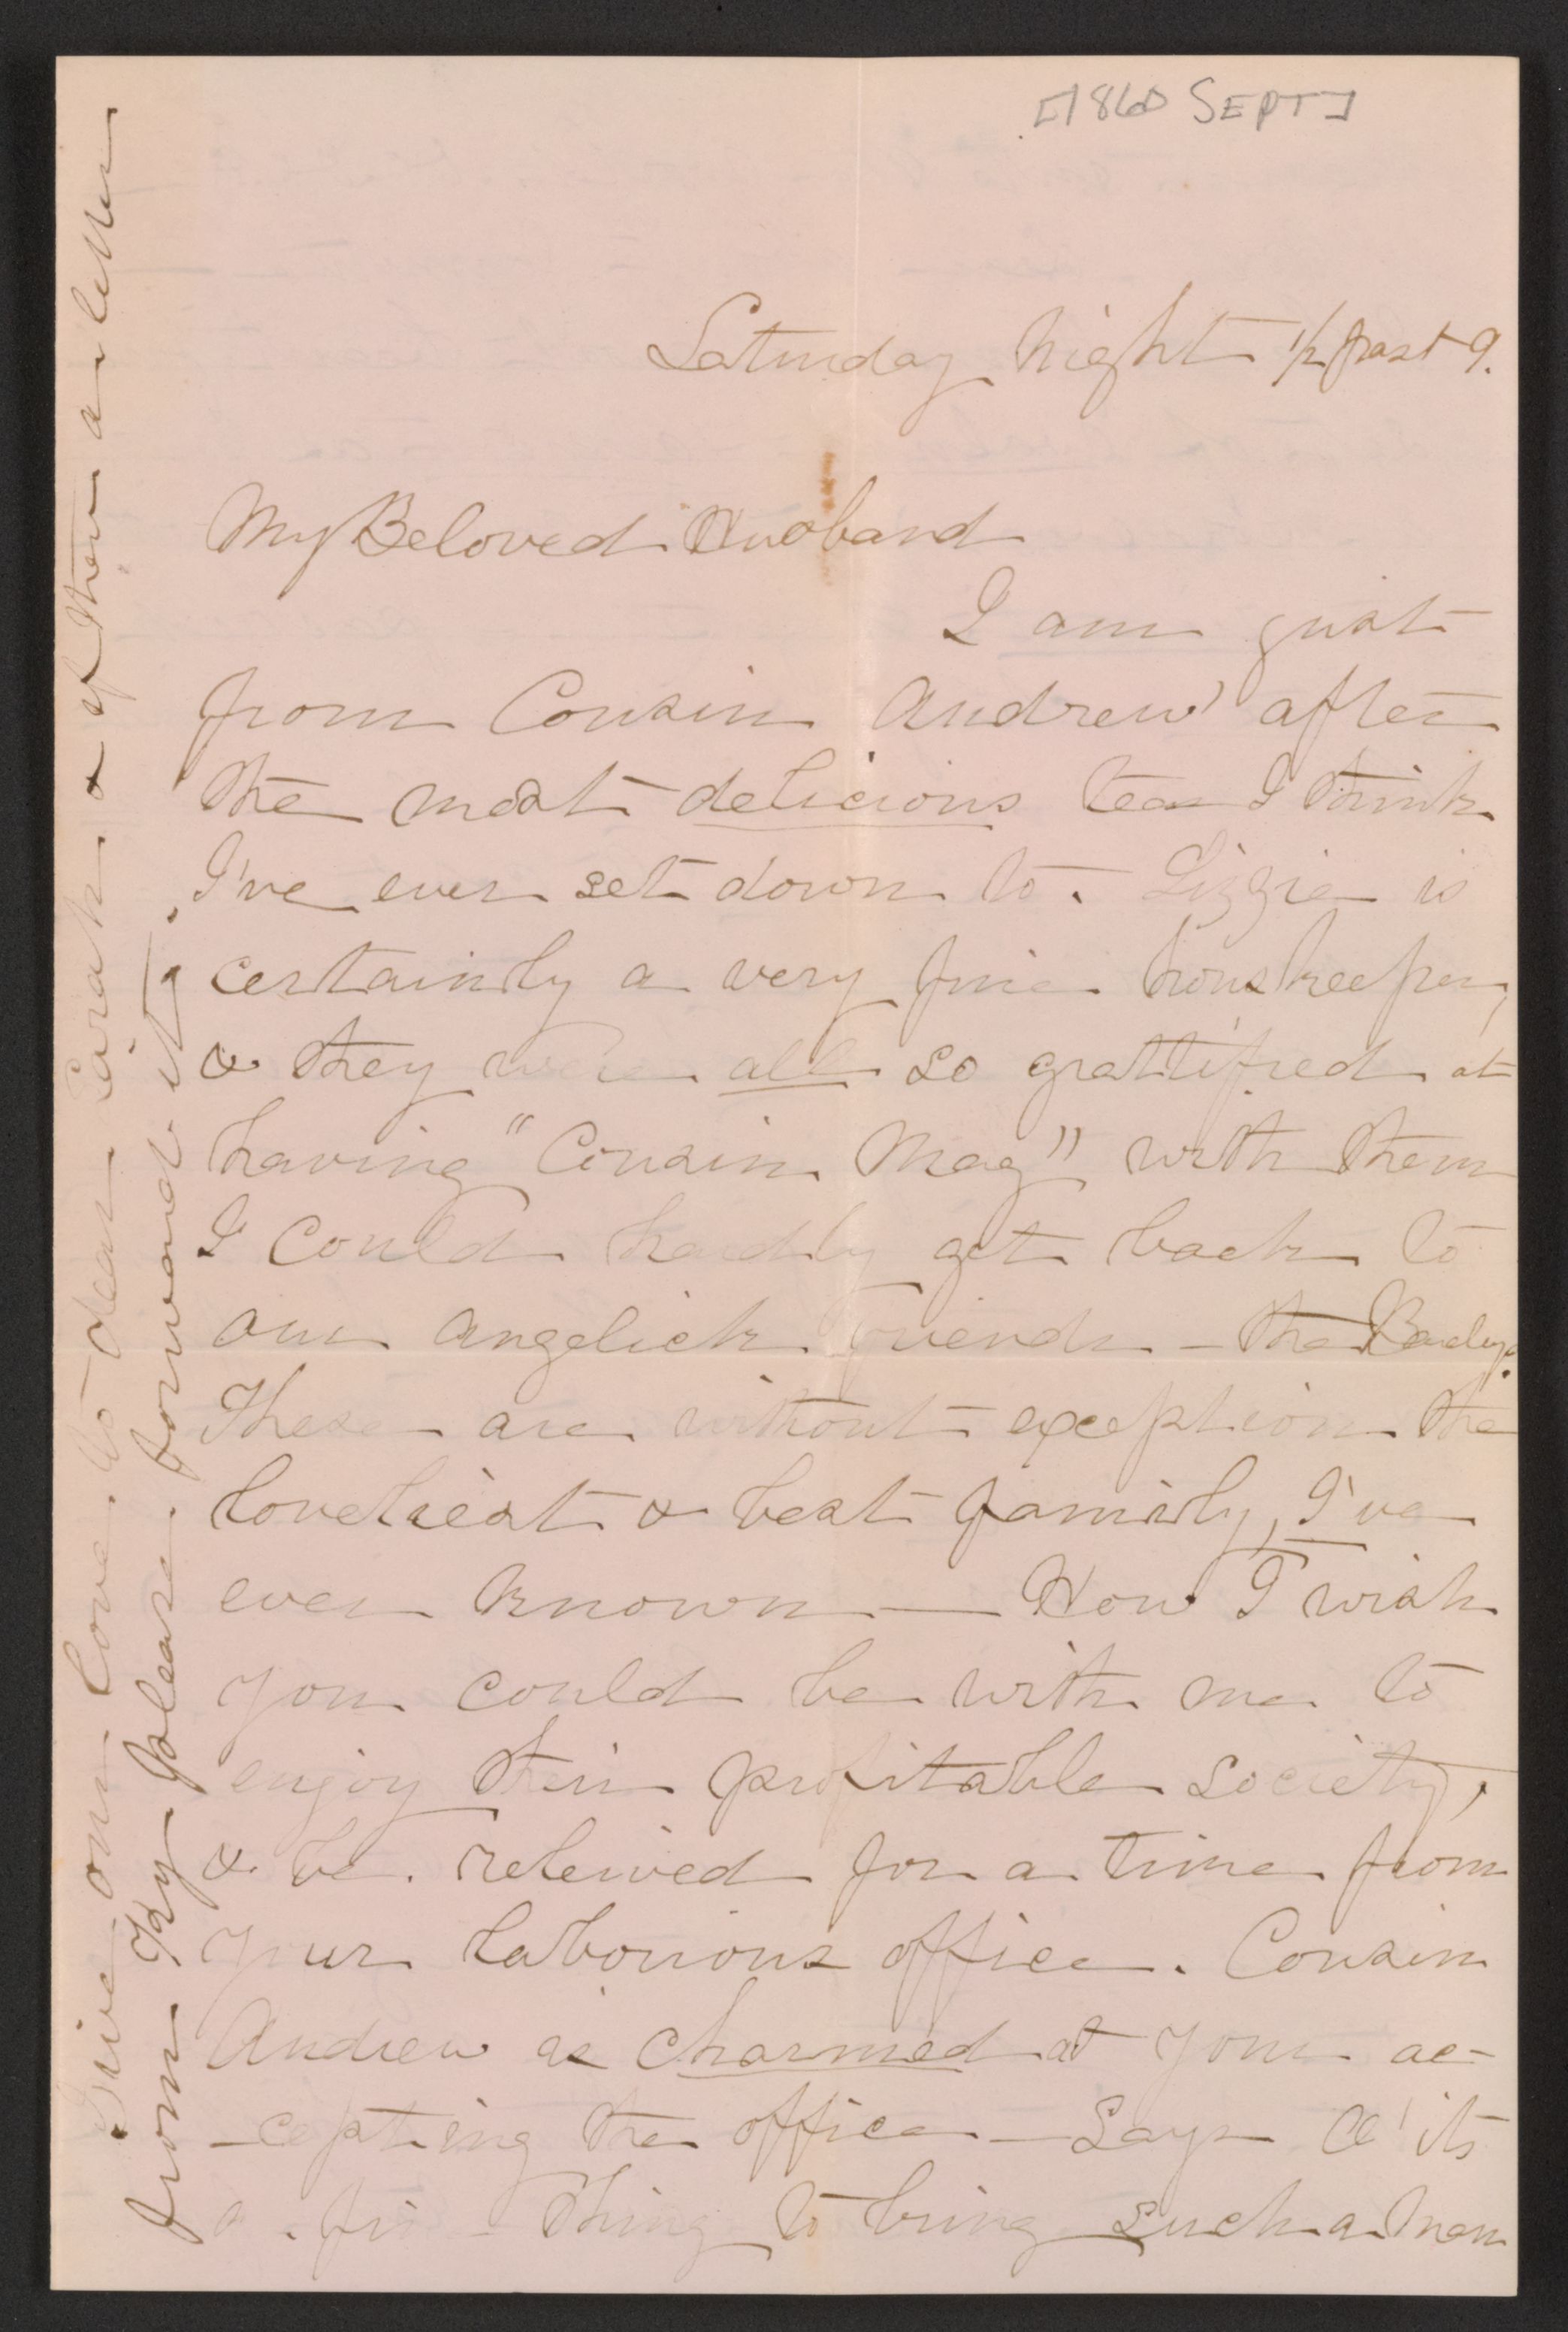 [1860 SEPT]
Saturday night 1/2 past 9.
My Beloved Husband
I am just
from Cousin Andrew' after
the most delicious tea I think
I've ever set down to. Lizzie is
certainly a very fine houskeeper,
& they were all so grattified at
having "Cousin Mag" with them
I could hardly get back to
our angelick friends - the
These are without exception the
loveliest & best family, I've
ever known — How I wish
you could be with me to
enjoy their profitable society,
& be releived for a time from
your laborious office. Cousin
Andrew is charmed at your ac-
-cepting the office — Says its
a fine thing to bring such a man
Give our love to dear Sarah & if there a letter
from Ky please forward it.